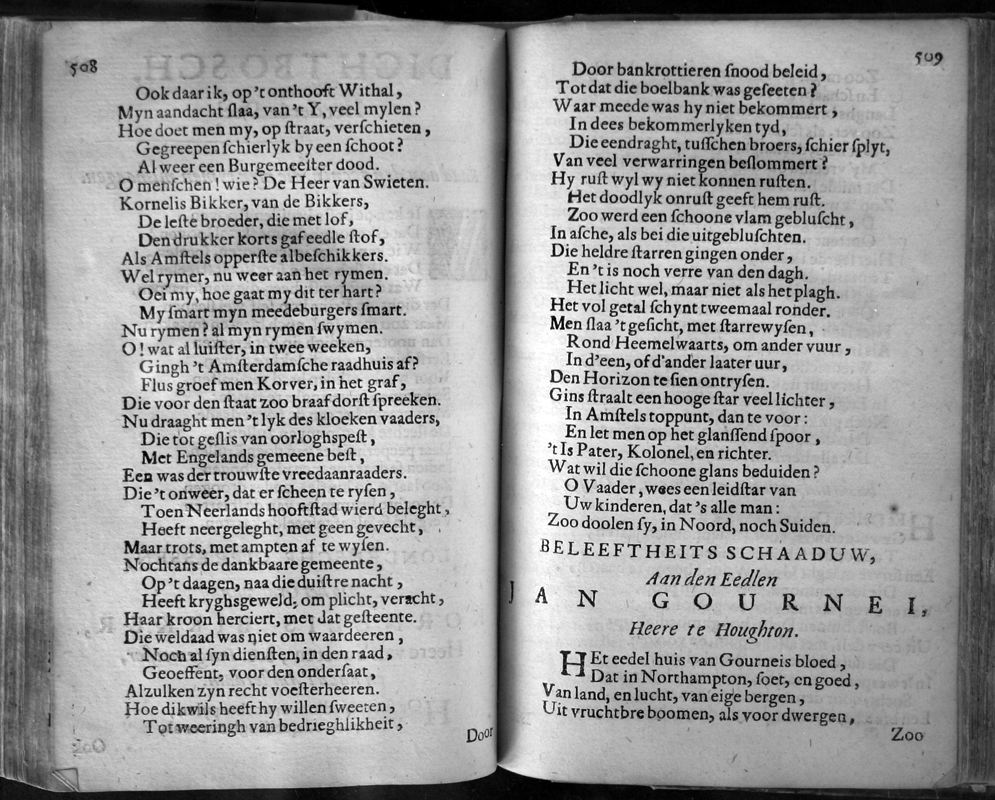 508
Ook daar ik, op 't onthooft Withal,
Myn aandacht ſlaa, van 't Y, veel mylen?
Hoe doet men my, op ſtraat, verſchieten,
Gegreepen ſchierlyk by een ſchoot?
Al weer een Burgemeeſter dood.
O menſchen! wie? De Heer van Swieten.
Kornelis Bikker, van de Bikkers,
De leſte broeder, die met lof,
Den drukker korts gaf eedle ſtof,
Als Amſtels opperſte albeſchikkers.
Wel rymer, nu weer aan het rymen.
Oei my, hoe gaat my dit ter hart?
My ſmart myn meedeburgers ſmart.
Nu rymen? al myn rymen ſwymen.
O! wat al luiſter, in twee weeken,
Gingh 't Amſterdamſche raadhuis af?
Flus groef men Korver, in het graf,
Die voor den ſtaat zoo braaf dorſt ſpreeken.
Nu draaght men 't lyk des kloeken vaaders,
Die tot geſlis van oorloghspeſt,
Met Engelands gemeene beſt,
Een was der trouwſte vreedaanraaders.
Die 't onweer, dat er ſcheen te ryſen,
Toen Neerlands hooftſtad wierd beleght,
Heeft neergeleght, met geen gevecht,
Maar trots, met ampten af te wyſen.
Nochtans de dankbaare gemeente,
Op 't daagen, naa die duiſtre nacht,
Heeft kryghsgeweld, om plicht, veracht,
Haar kroon herciert, met dat geſteente.
Die weldaad was niet om waardeeren,
Noch al ſyn dienſten, in den raad,
Geoeffent, voor den onderſaat,
Alzulken zyn recht voeſterheeren.
Hoe dikwils heeft hy willen ſweeten,
Tot weeringh van bedrieghlikheit,
Door
509
Door bankrottieren ſnood beleid,
Tot dat die boelbank was geſeeten?
Waar meede was hy niet bekommert,
In dees bekommerlyken tyd,
Die eendraght, tuſſchen broers, ſchier ſplyt,
Van veel verwarringen beſlommert?
Hy ruſt wyl wy niet konnen ruſten.
Het doodlyk onruſt geeft hem ruſt.
Zoo werd een ſchoone vlam gebluſcht,
In aſche, als bei die uitgebluſchten.
Die heldre ſtarren gingen onder,
En 't is noch verre van den dagh.
Het licht wel, maar niet als het plagh.
Het vol getal ſchynt tweemaal ronder.
Men ſlaa 't geſicht, met ſtarrewyſen,
Rond Heemelwaarts, om ander vuur,
In d'een, of d'ander laater uur,
Den Horizon te ſien ontryſen.
Gins ſtraalt een hooge ſtar veel lichter,
In Amſtels toppunt, dan te voor:
En let men op het glanſſend ſpoor,
't Is Pater, Kolonel, en richter.
Wat wil die ſchoone glans beduiden?
O Vaader, wees een leidſtar van
Uw kinderen, dat 's alle man:
Zoo doolen ſy, in Noord, noch Suiden.
BELEEFTHEITS SCHAADUW,
Aan den Eedlen
JAN GOURNEI,
Heere te Houghton.
HEt eedel huis van Gourneis bloed,
Dat in Northampton, ſoet, en goed,
Van land, en lucht, van eige bergen,
Uit vruchtbre boomen, als voor dwergen,
Zoo